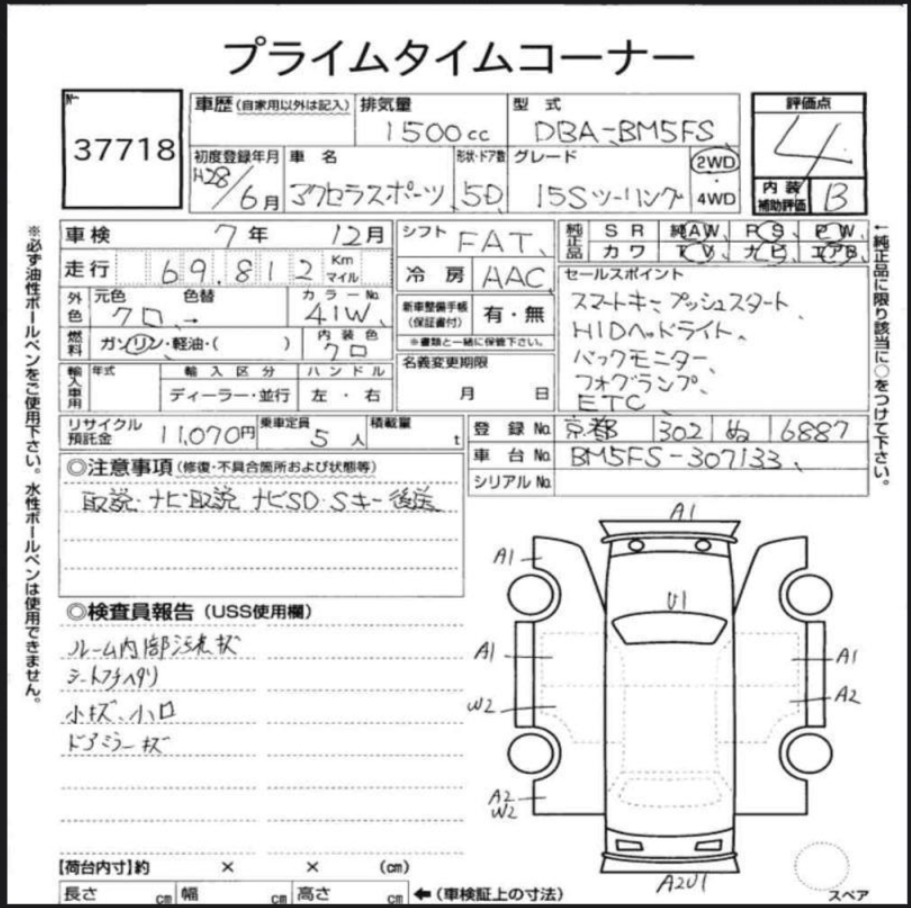 プライムタイムコーナー
No. 37718
車歴(自家用以外は記入) 排気量 1500cc 型式 DBA-BM5FS
評価点 4
初度登録年月 H28/6月 車名 アクセラスポーツ 形状・ドア数 5D グレード 15Sツーリング 2WD・4WD
内装補助評価 B
車検 7年 12月
走行 69,812 Km マイル
外色 元色 クロ → 色替 カラーNo. 41W
燃料 ガソリン・軽油・( ) 内装色 クロ
輸入車用 年式 輸入区分 ディーラー・並行 ハンドル 左・右
シフト FAT
冷房 AAC
新車整備手帳(保証書付) 有・無
※書類と一緒に保管下さい。
名義変更期限 月 日
純正品 SR 純AW PS PW
カワ TV ナビ エアB
セールスポイント
スマートキー、プッシュスタート
HIDヘッドライト、
バックモニター、
フォグランプ、
ETC、
リサイクル預託金 11,070円 乗車定員 5人 積載量 t
登録No. 京都 302 ぬ 6887
車台No. BM5FS-307133
シリアルNo.
◎注意事項(修復・不具合箇所および状態等)
取説、ナビ取説、ナビSD、Sキー後送
◎検査員報告(USS使用欄)
ルーム内部汚れ、キズ
シートフチヘタリ
小キズ、小凹
ドアミラーキズ
A1
A1
U1
A1
A1
W2
A2
A2
W2
A2U1
スペア
【荷台内寸】約 × × (cm)
長さ cm 幅 cm 高さ cm ←(車検証上の寸法)
※必ず油性ボールペンをご使用下さい。水性ボールペンは使用できません。
←純正品に限り該当に○をつけて下さい。